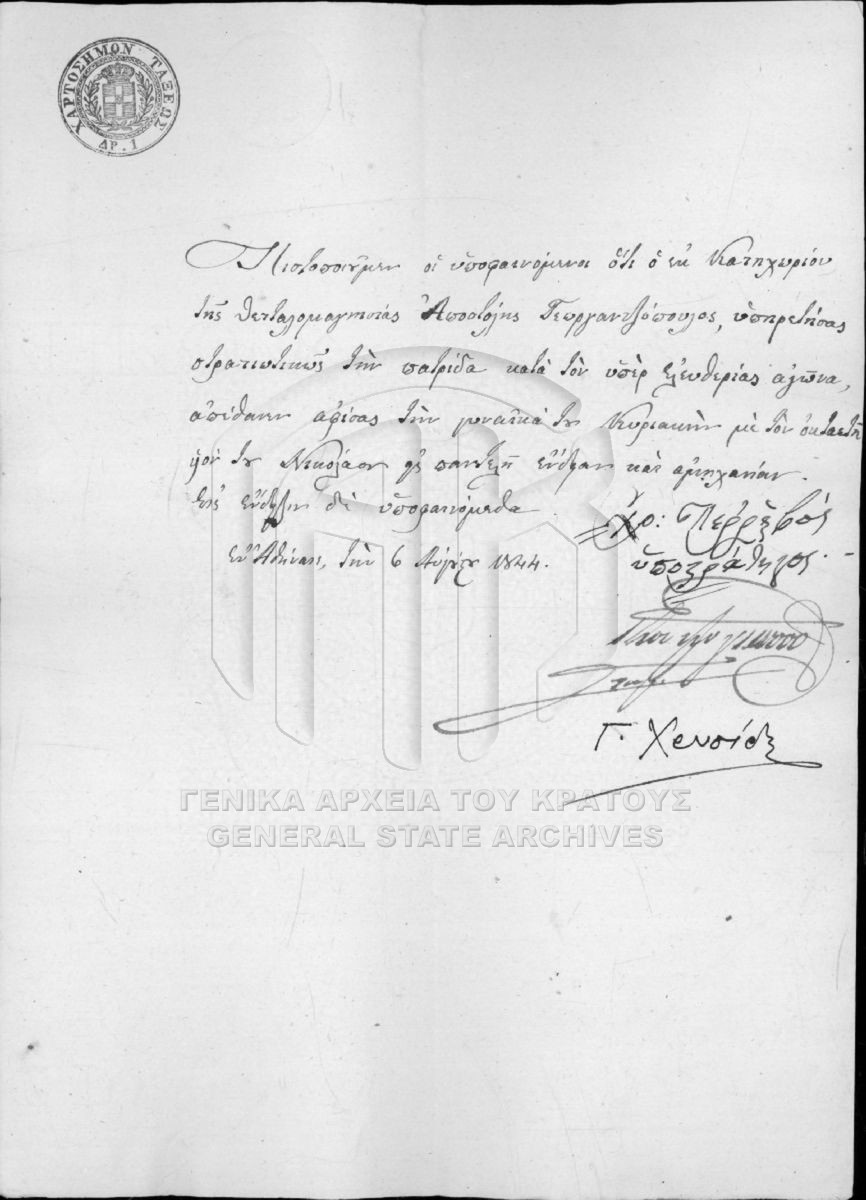 ΧΑΡΤΟΣΗΜΟΝ ΤΑΞΕΩΣ
ΔΡ. 1
Πιστοποιοῦμεν οἱ ὑποφαινόμενοι ὅτι ὁ ἐκ Κατηχωρίου
τῆς Θετταλομαγνησίας Ἀποστόλης Γεωργαντζόπουλος, ὑπηρετήσας
στρατιωτικῶς τὴν πατρίδα κατὰ τὸν ὑπὲρ ἐλευθερίας ἀγῶνα,
ἀπέθανεν ἀφίσας τὴν γυναῖκά του Κυριακὴν μὲ τὸν ὀκταετῆ
υἱόν του Νικόλαον εἰς παντελῆ ἔνδειαν καὶ ἀμηχανίαν.
Εἰς ἔνδειξιν δὲ ὑποφαινόμεθα
ἐν Ἀθήναις, τὴν 6 1844.
Χρ: Περραιβὸς
ὑποστράτηγος
Γ. Χρυσίδης
ΓΕΝΙΚΑ ΑΡΧΕΙΑ ΤΟΥ ΚΡΑΤΟΥΣ
GENERAL STATE ARCHIVES